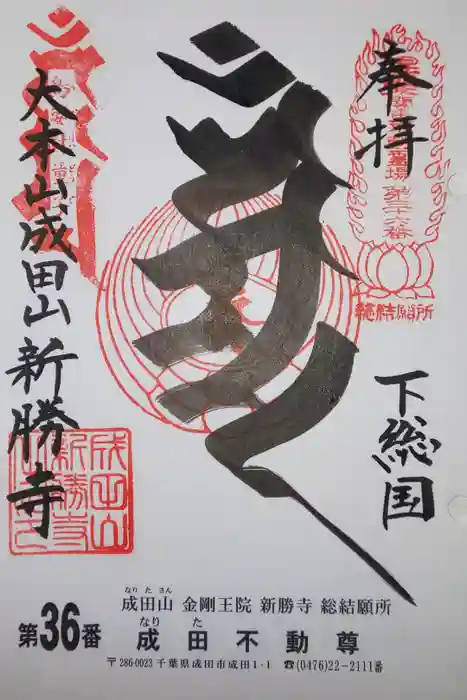 奉拝
下総国
大本山成田山新勝寺
第三十六番
総結願所
成田山
新勝寺
なりたさん
成田山 金剛王院 新勝寺 総結願所
なり た
第36番 成田不動尊
〒286-0023 千葉県成田市成田1-1 ☎(0476)22-2111番